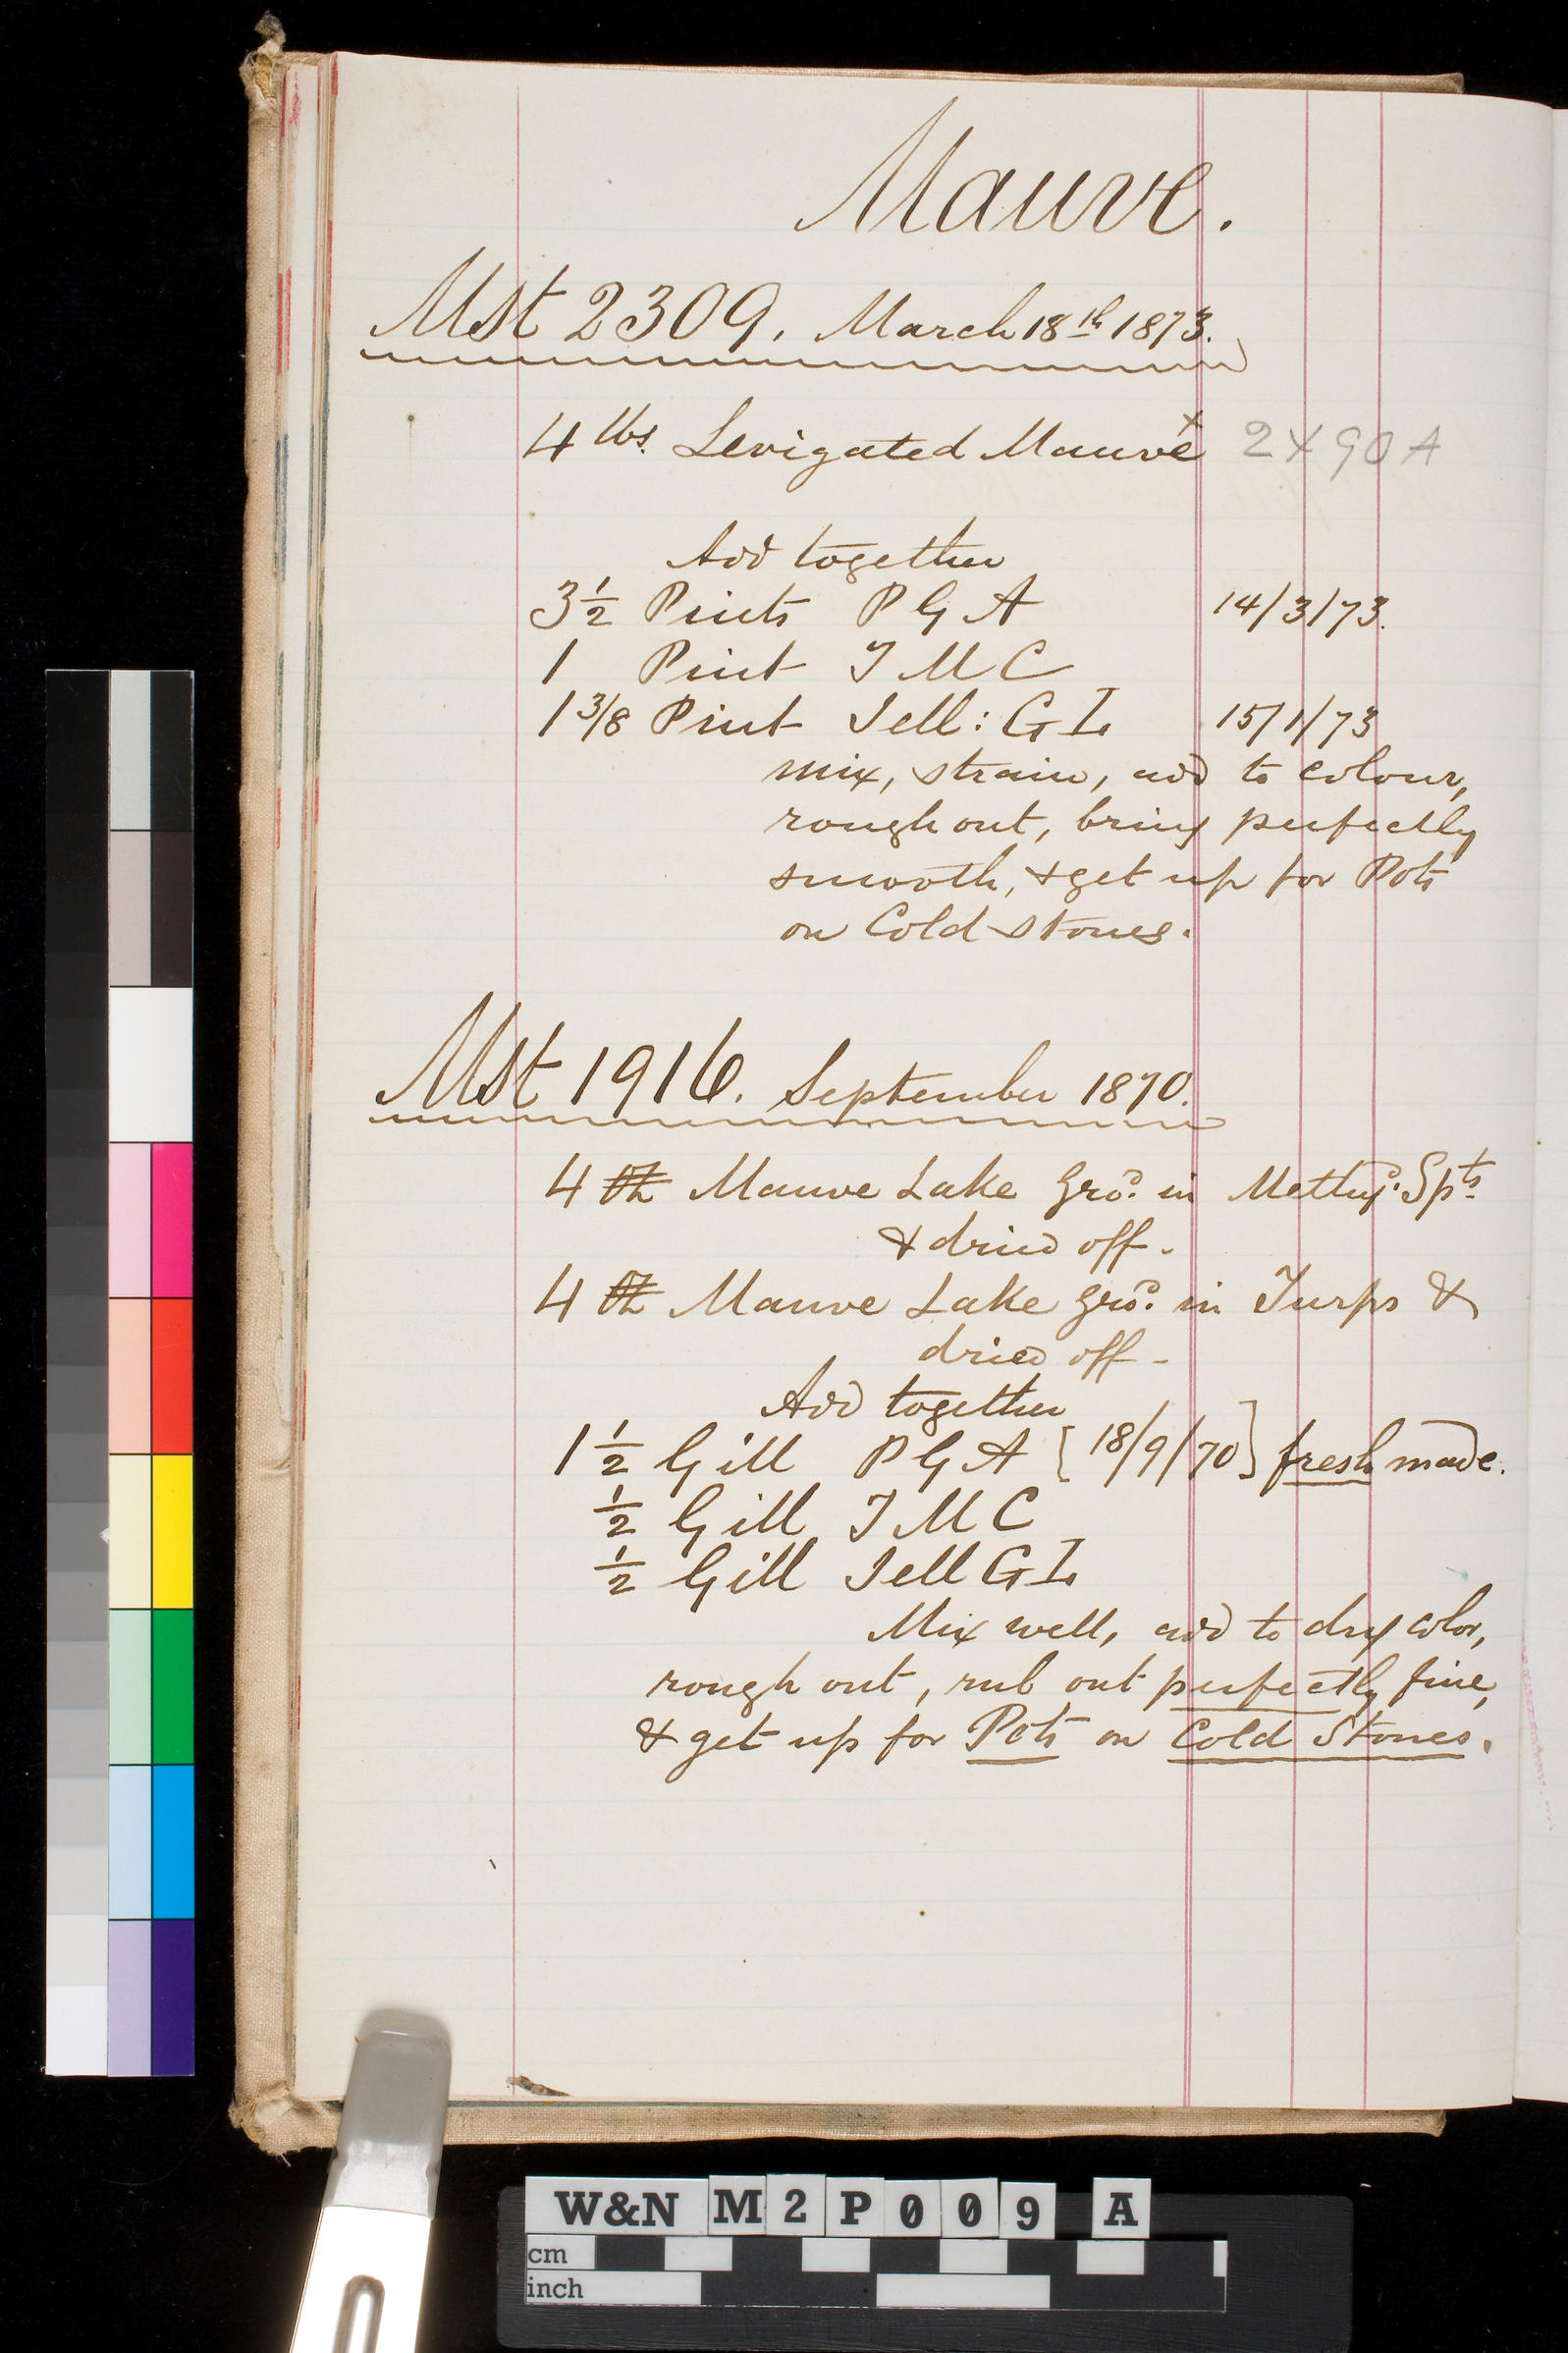 Mauve.
Mst 2309. March 18th 1873.
4 lbs. Levigated Mauve x 2X90A
Add together
3½ Pints P G A 14/3/73.
1 Pint J M C
1 3/8 Pint Jell: G L 15/1/73
mix, strain, add to colour,
rough out, bring perfectly
smooth, & get up for Pots
on Cold Stones.
Mst 1916. September 1870.
4 lb Mauve Lake Grd. in Methyd. Spts
& dried off.
4 lb Mauve Lake grd. in Turps &
dried off -
Add together
1½ Gill P G A [18/9/70] fresh made.
½ Gill J M C
½ Gill Jell G L
Mix well, add to dry color,
rough out, rub out perfectly fine,
& get up for Pots on Cold Stones.
W&N M2P009 A
cm
inch